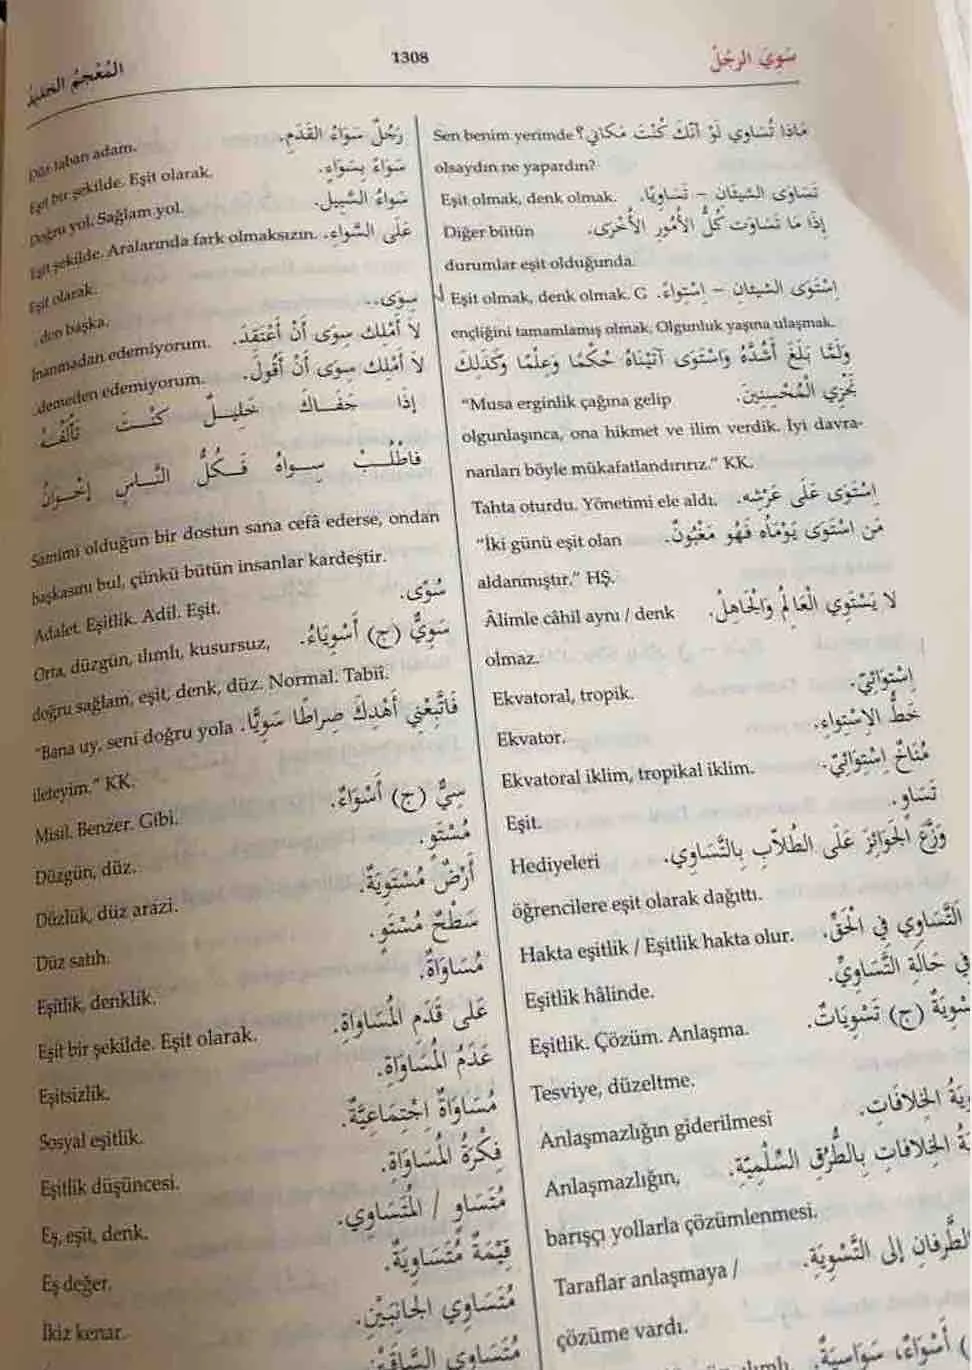 سَوِيَ الرَجُلُ
1308
المُعْجَمُ
مَاذَا تُسَاوِي لَوْ أَنَّكَ كُنْتَ مَكَانِي؟ Sen benim yerimde
olsaydın ne yapardın?
تَسَاوَى الشيئان – تَسَاوِيًا. Eşit olmak, denk olmak.
إِذَا مَا تَسَاوَت كُلُّ الأُمُورِ الأُخْرَى. Diğer bütün
durumlar eşit olduğunda.
اسْتَوَى الشيئان – اسْتِواءً. Eşit olmak, denk olmak. G
ençliğini tamamlamış olmak. Olgunluk yaşına ulaşmak.
وَلَمَّا بَلَغَ أَشُدَّهُ وَاسْتَوَى آتَيْنَاهُ حُكْمًا وَعِلْمًا وَكَذَلِكَ
نَجْزِي الْمُحْسِنِينَ. "Musa erginlik çağına gelip
olgunlaşınca, ona hikmet ve ilim verdik. İyi davra-
nanları böyle mükafatlandırırız." KK.
اِسْتَوَى عَلَى عَرْشِه. Tahta oturdu. Yönetimi ele aldı.
مَنِ اسْتَوَى يَوْمَاُه فَهُو مَغْبُونٌ. "İki günü eşit olan
aldanmıştır." HŞ.
لا يَسْتَوِي الْعَالِمُ وَالْجَاهِلُ. Âlimle câhil aynı / denk
olmaz.
اِسْتِوَائِيّ. Ekvatoral, tropik.
خَطُّ الاِسْتِواءِ. Ekvator.
مُنَاخٌ اِسْتِوَائِيّ. Ekvatoral iklim, tropikal iklim.
تَسَاوٍ. Eşit.
وَزَّعَ الْجَوَائِزَ عَلَى الطُّلاَّبِ بِالتَّسَاوِي. Hediyeleri
öğrencilere eşit olarak dağıttı.
التَّسَاوِي فِي الْحَقِّ. Hakta eşitlik / Eşitlik hakta olur.
فِي حَالَةِ التَّسَاوِي. Eşitlik hâlinde.
(ج) تَسْوِيَاتٌ. Eşitlik. Çözüm. Anlaşma.
Tesviye, düzeltme.
الخِلافَاتِ. Anlaşmazlığın giderilmesi
الخِلافَاتِ بِالطُّرُقِ السِّلْمِيَّةِ. Anlaşmazlığın,
barışçı yollarla çözümlenmesi.
الطَّرفَانِ إلى التَّسْوِيَةِ. Taraflar anlaşmaya /
çözüme vardı.
أَسْوَاءٌ، سَوَاسِيَةٌ.
رَجُلٌ سَوَاءُ القَدَمِ. Düz taban adam.
سَوَاءً بِسَوَاءٍ. Eşit bir şekilde. Eşit olarak.
سَواءُ السَّبِيل. Doğru yol. Sağlam yol.
عَلَى السَّواءِ. Eşit şekilde. Aralarında fark olmaksızın.
Eşit olarak.
سِوَى.. ..den başka.
لاَ أَمْلِك سِوَى أَنْ أَعْتَقِدَ. İnanmadan edemiyorum.
لاَ أَمْلِك سِوَى أَنْ أَقُولَ. ..demeden edemiyorum.
إِذَا جَفَـاكَ خَلِيـلٌ كنْـتَ تَأْلَفُـهُ
فَاطْلُـبْ سِـواهُ فَـكُلُّ النَّـاسِ إِخْـوَانُ
Samimi olduğun bir dostun sana cefâ ederse, ondan
başkasını bul, çünkü bütün insanlar kardeştir.
سُوًى. Adalet. Eşitlik. Adil. Eşit.
سَوِيٌّ (ج) أَسْوِيَاءُ. Orta, düzgün, ılımlı, kusursuz,
doğru sağlam, eşit, denk, düz. Normal. Tabiî.
فَاتَّبِعْنِي أَهْدِكَ صِرَاطًا سَوِيًّا. "Bana uy, seni doğru yola
ileteyim." KK.
سِيٌّ (ج) أَسْوَاءٌ. Misil. Benzer. Gibi.
مُسْتَوٍ. Düzgün, düz.
أَرْضٌ مُسْتَوِيَةٌ. Düzlük, düz arâzi.
سَطْحٌ مُسْتَوٍ. Düz satıh.
مُسَاوَاةٌ. Eşitlik, denklik.
عَلى قَدَمِ الْمُسَاواةِ. Eşit bir şekilde. Eşit olarak.
عَدَمُ الْمُسَاوَاةِ. Eşitsizlik.
مُسَاوَاةٌ اجْتِمَاعِيَّةٌ. Sosyal eşitlik.
فِكْرَةُ الْمُسَاوَاةِ. Eşitlik düşüncesi.
مُتَسَاو / الْمُتَسَاوِي. Eş, eşit, denk.
قِيْمَةٌ مُتَسَاوِيَةٌ. Eş değer.
مُتَسَاوِي الْجَانِبَيْنِ. İkiz kenar.
مُتَسَاوِي السَّاقَيْنِ